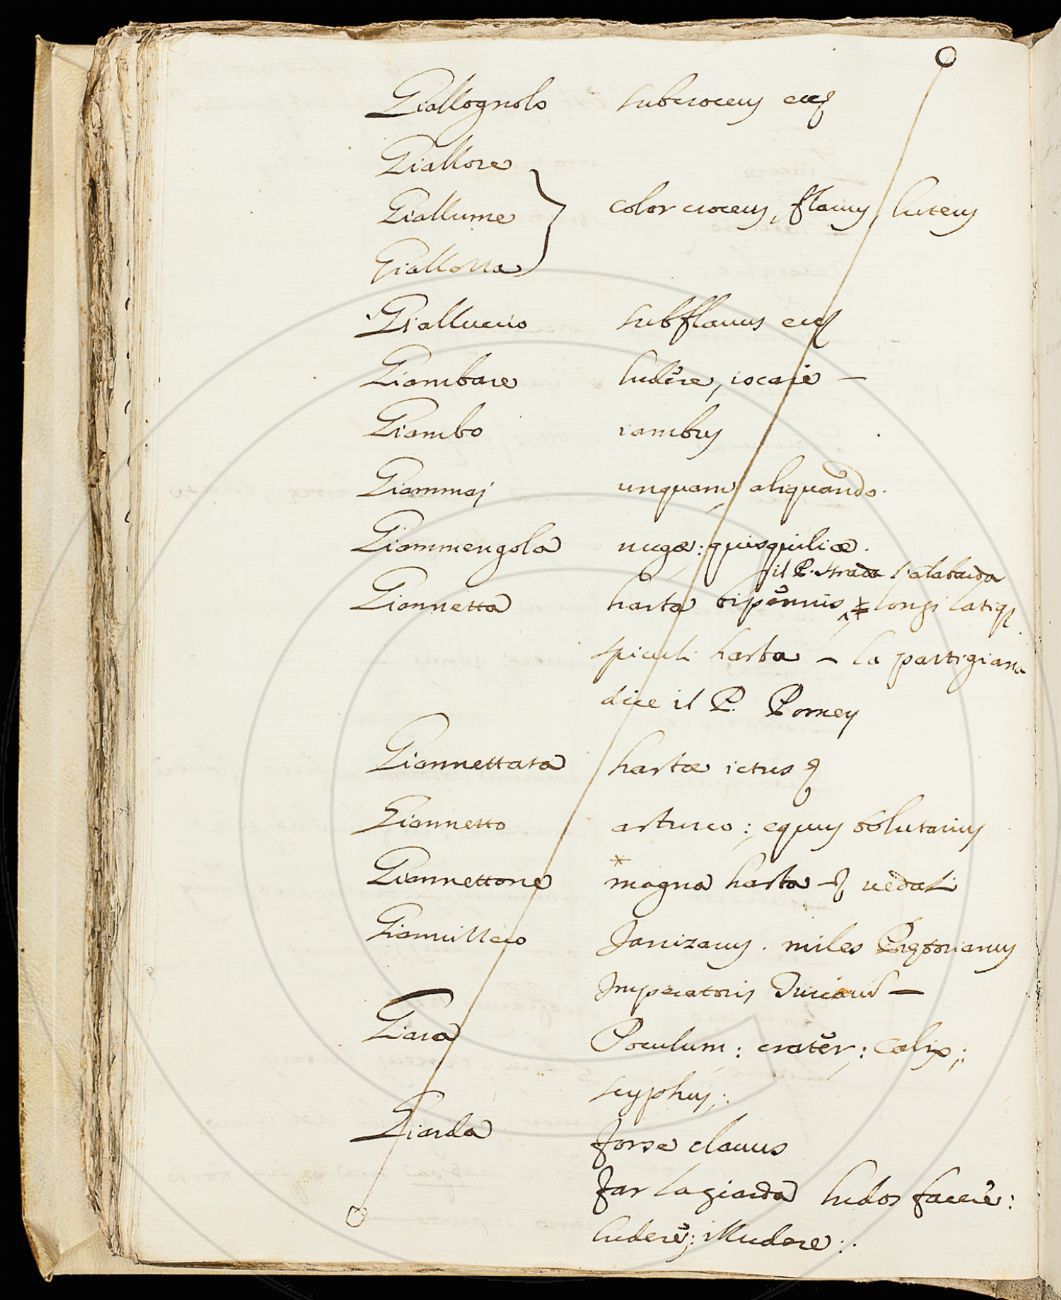 Giallognolo subcroceus
Giallore
Giallume color croceus, flavus, luteus
Giallorra
Gialluccio subflavus
Giambare ludere, iocare —
Giambo iambus
Giammaj unquam, aliquando.
Giammengola nugæ: quisquiliæ.
il P. Strada l'alabarda
Giannetta hasta bipennis, longi latiq
spiculi hasta — la partigiana
dice il P. Pomey
Giannettata hastæ ictus
Giannetto asturco: equus tolutarius
Giannettone magna hasta —
Giannizzero Janizarus. miles Prætorianus
Imperatoris —
Giara Poculum: crater: calix:
scyphus:
Giarda forse clavus
far la giarda ludos facere:
ludere: illudere: